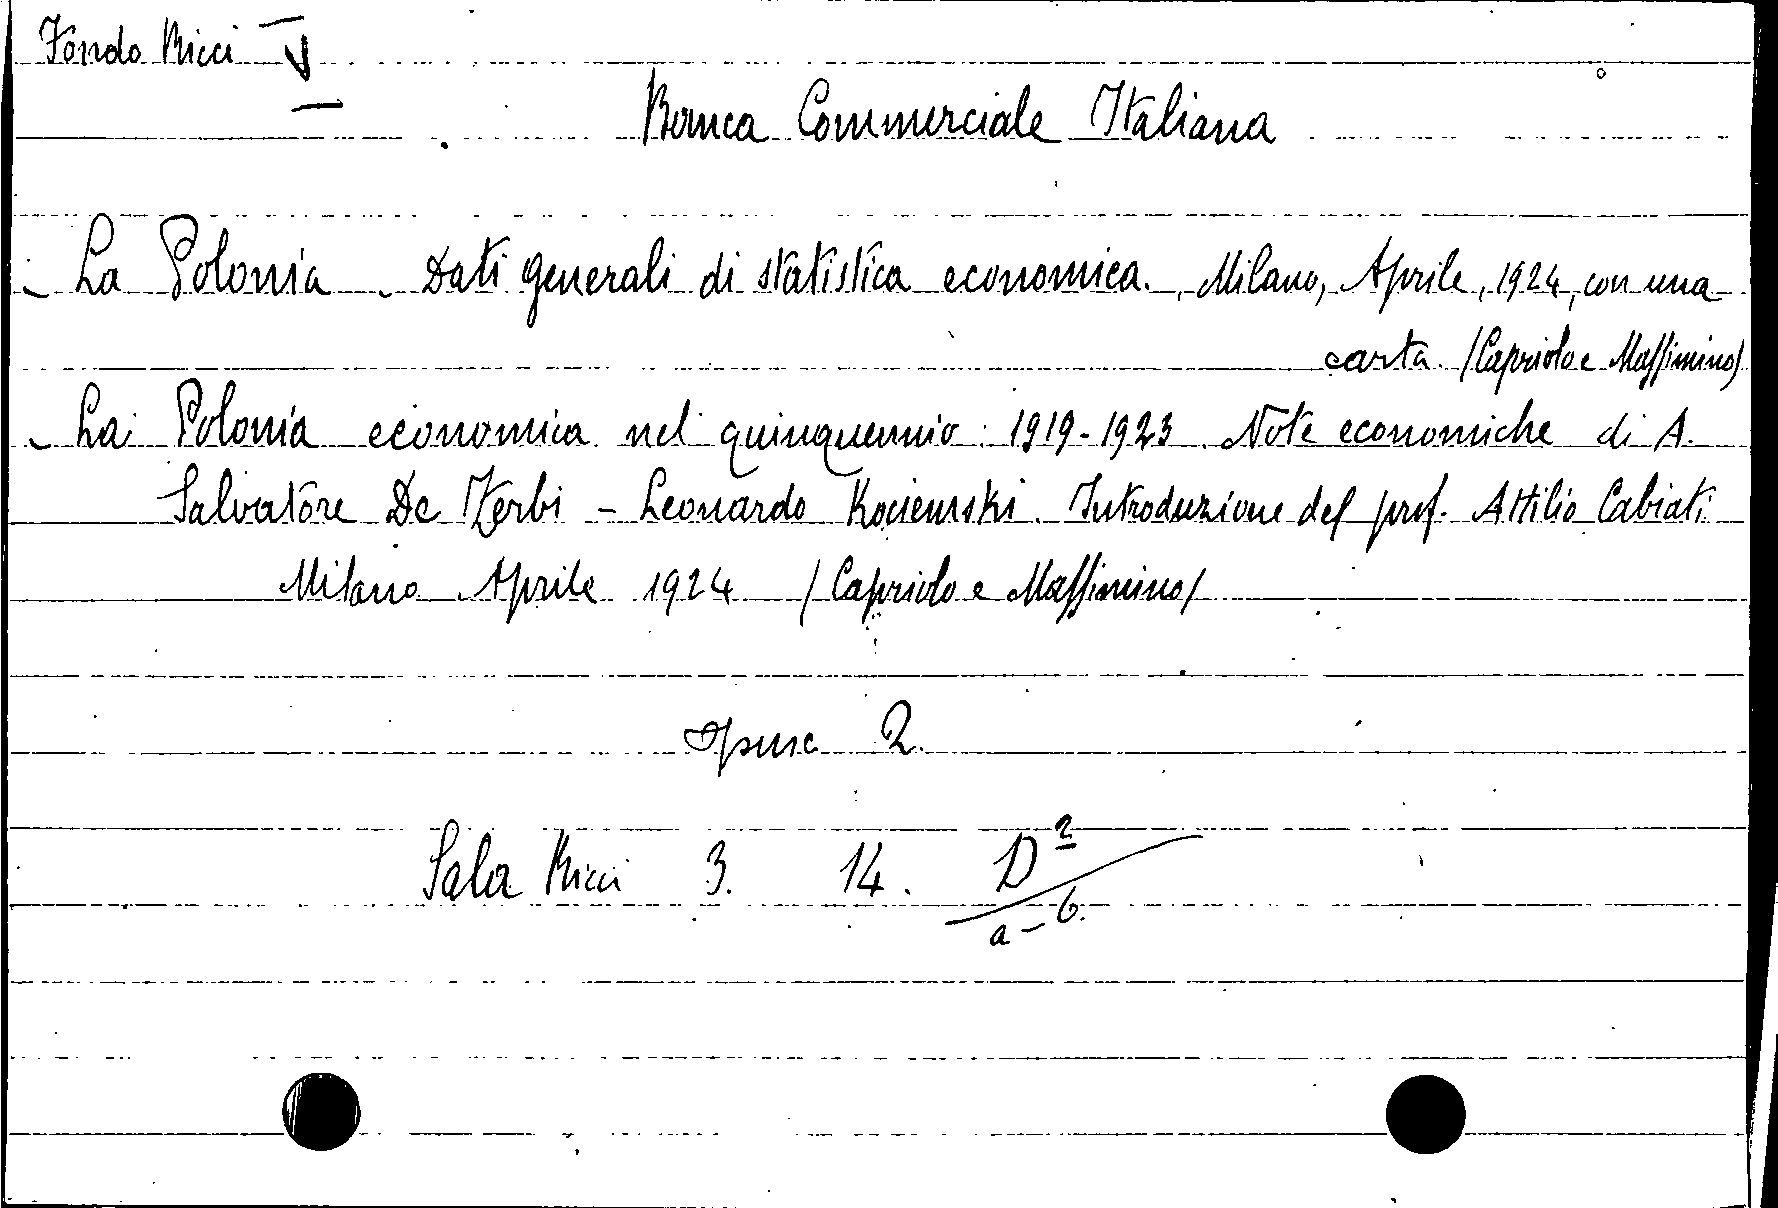 Fondo Ricci V
Banca Commerciale Italiana
- La Polonia - Dati generali di statistica economica. Milano, Aprile, 1924, con una
carta. (Capriolo e Massimino)
- La Polonia economica nel quinquennio 1919-1923. Note economiche di A.
Salvatore De Zerbi - Leonardo Kociemski. Introduzione del prof. Attilio Cabiati
Milano Aprile 1924 (Capriolo e Massimino)
opusc 2.
Sala Ricci 3. 14. D2
a - b.